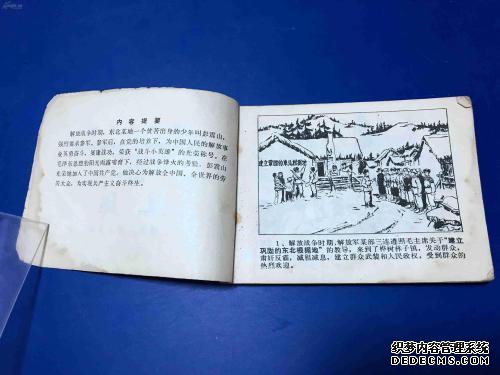 内容提要
解放战争时期，东北某地一个贫苦出身的少年叫彭震山，
强烈要求参军。参军后，在党的培育下，为中国人民的解放事
业英勇奋斗，屡建战功，荣获“战斗小英雄”的光荣称号。在
毛泽东思想的阳光雨露哺育下，经过战争烽火的考验，彭震山
光荣地加入了中国共产党。他决心为解放全中国、全世界的劳
苦大众，为实现共产主义奋斗终生。
建立巩固的东北根据地
1、解放战争时期，解放军某部三连遵照毛主席关于“建立
巩固的东北根据地”的教导，来到了桦树林子镇，发动群众，
肃奸反霸，减租减息，建立群众武装和人民政权，受到群众的
热烈欢迎。
织梦内容管理系统
DEDECMS.COM